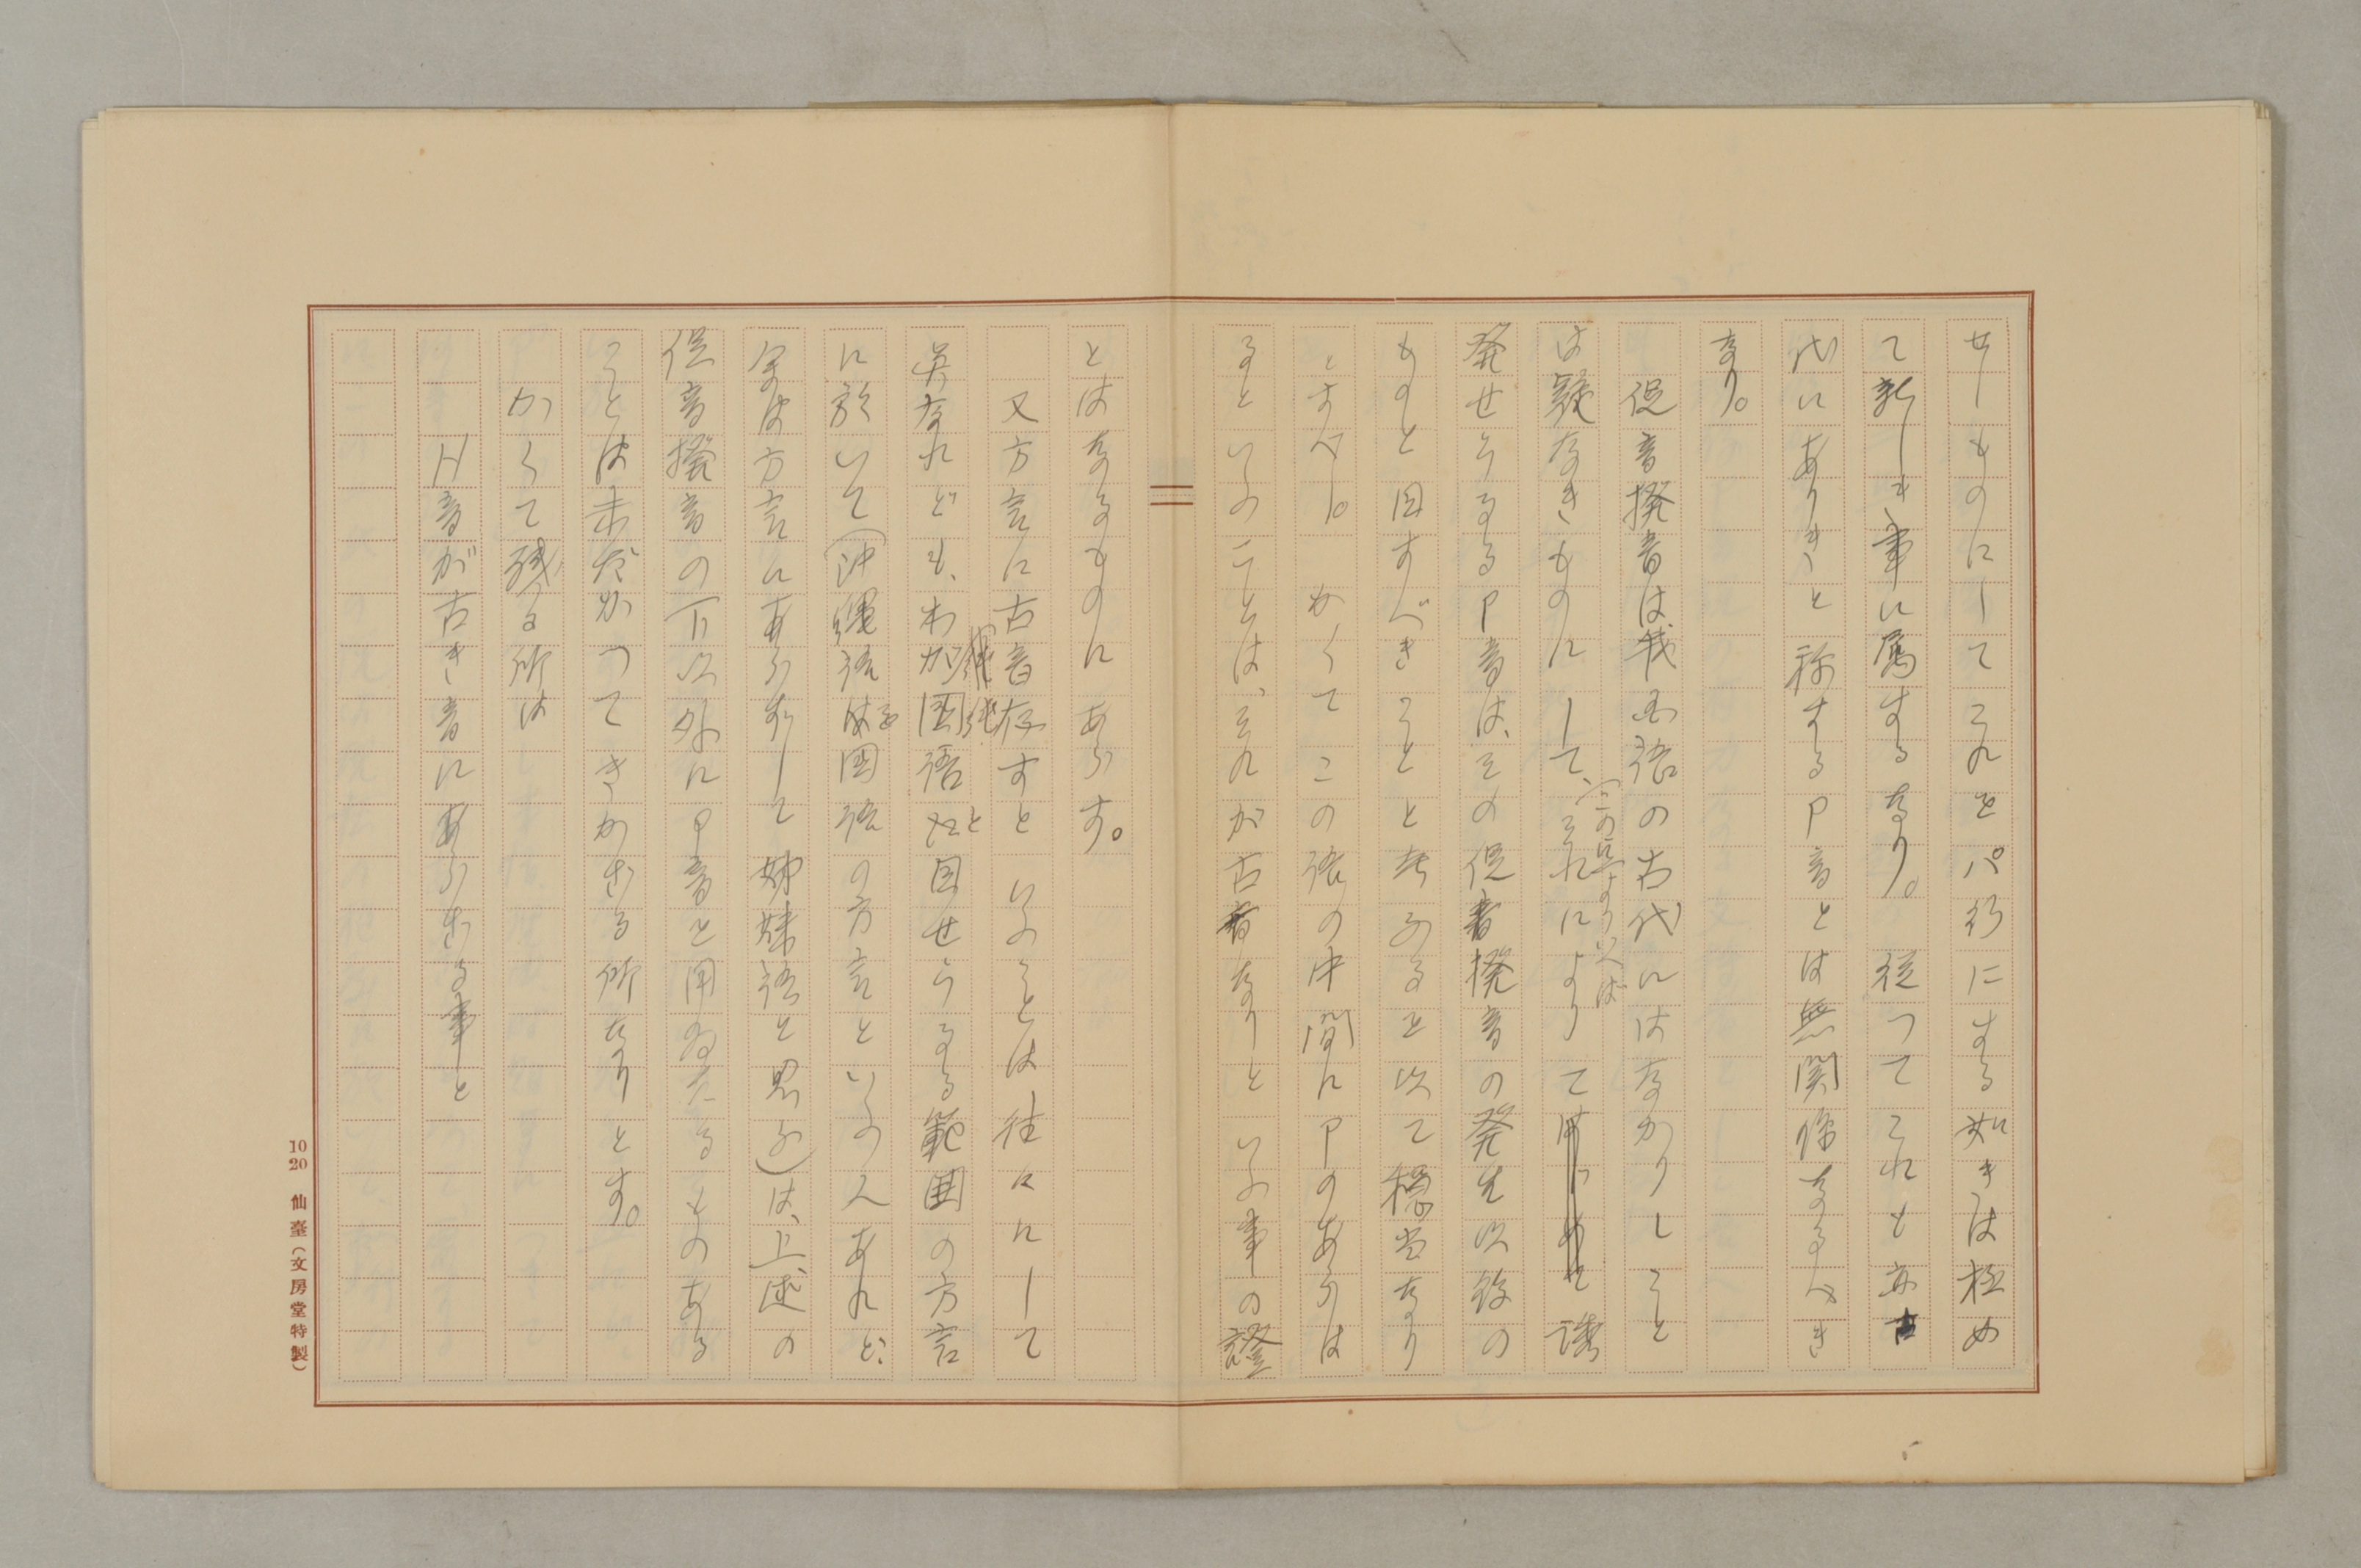 せしものにしてこれをパ行にする如きは極め
て新しき事に属するなり。従つてこれも亦古
代にありきと称するP音とは無関係なるべき
なり。
促音撥音は我国語の古代にはなかりしこと
は疑なきものにして、それによりて誘
(この二(より)以は
発せらるるP音は、その促音撥音の発生以後の
ものと目すべきことと考ふるを以て穏当なり
とすべし。かくてこの語の中間にPのあらは
るといふことは、それが古音なりといふ事の證
とはなるものにあらず。
又方言に古音存すといふことは往々にして
見なれども、わが国語と目せらるる範囲の方言
純粋
に於いて(沖縄語を国語の方言といふ人あれど、
余は方言にあらずして姉妹語と思ふ)は、上述の
促音撥音の下以外にP音を用ゐたるものある
ことは未だかつてきかざる所なりとす。
かくて残る所は
H音が古き音にあらざる事と
10 20 仙臺(文房堂特製)